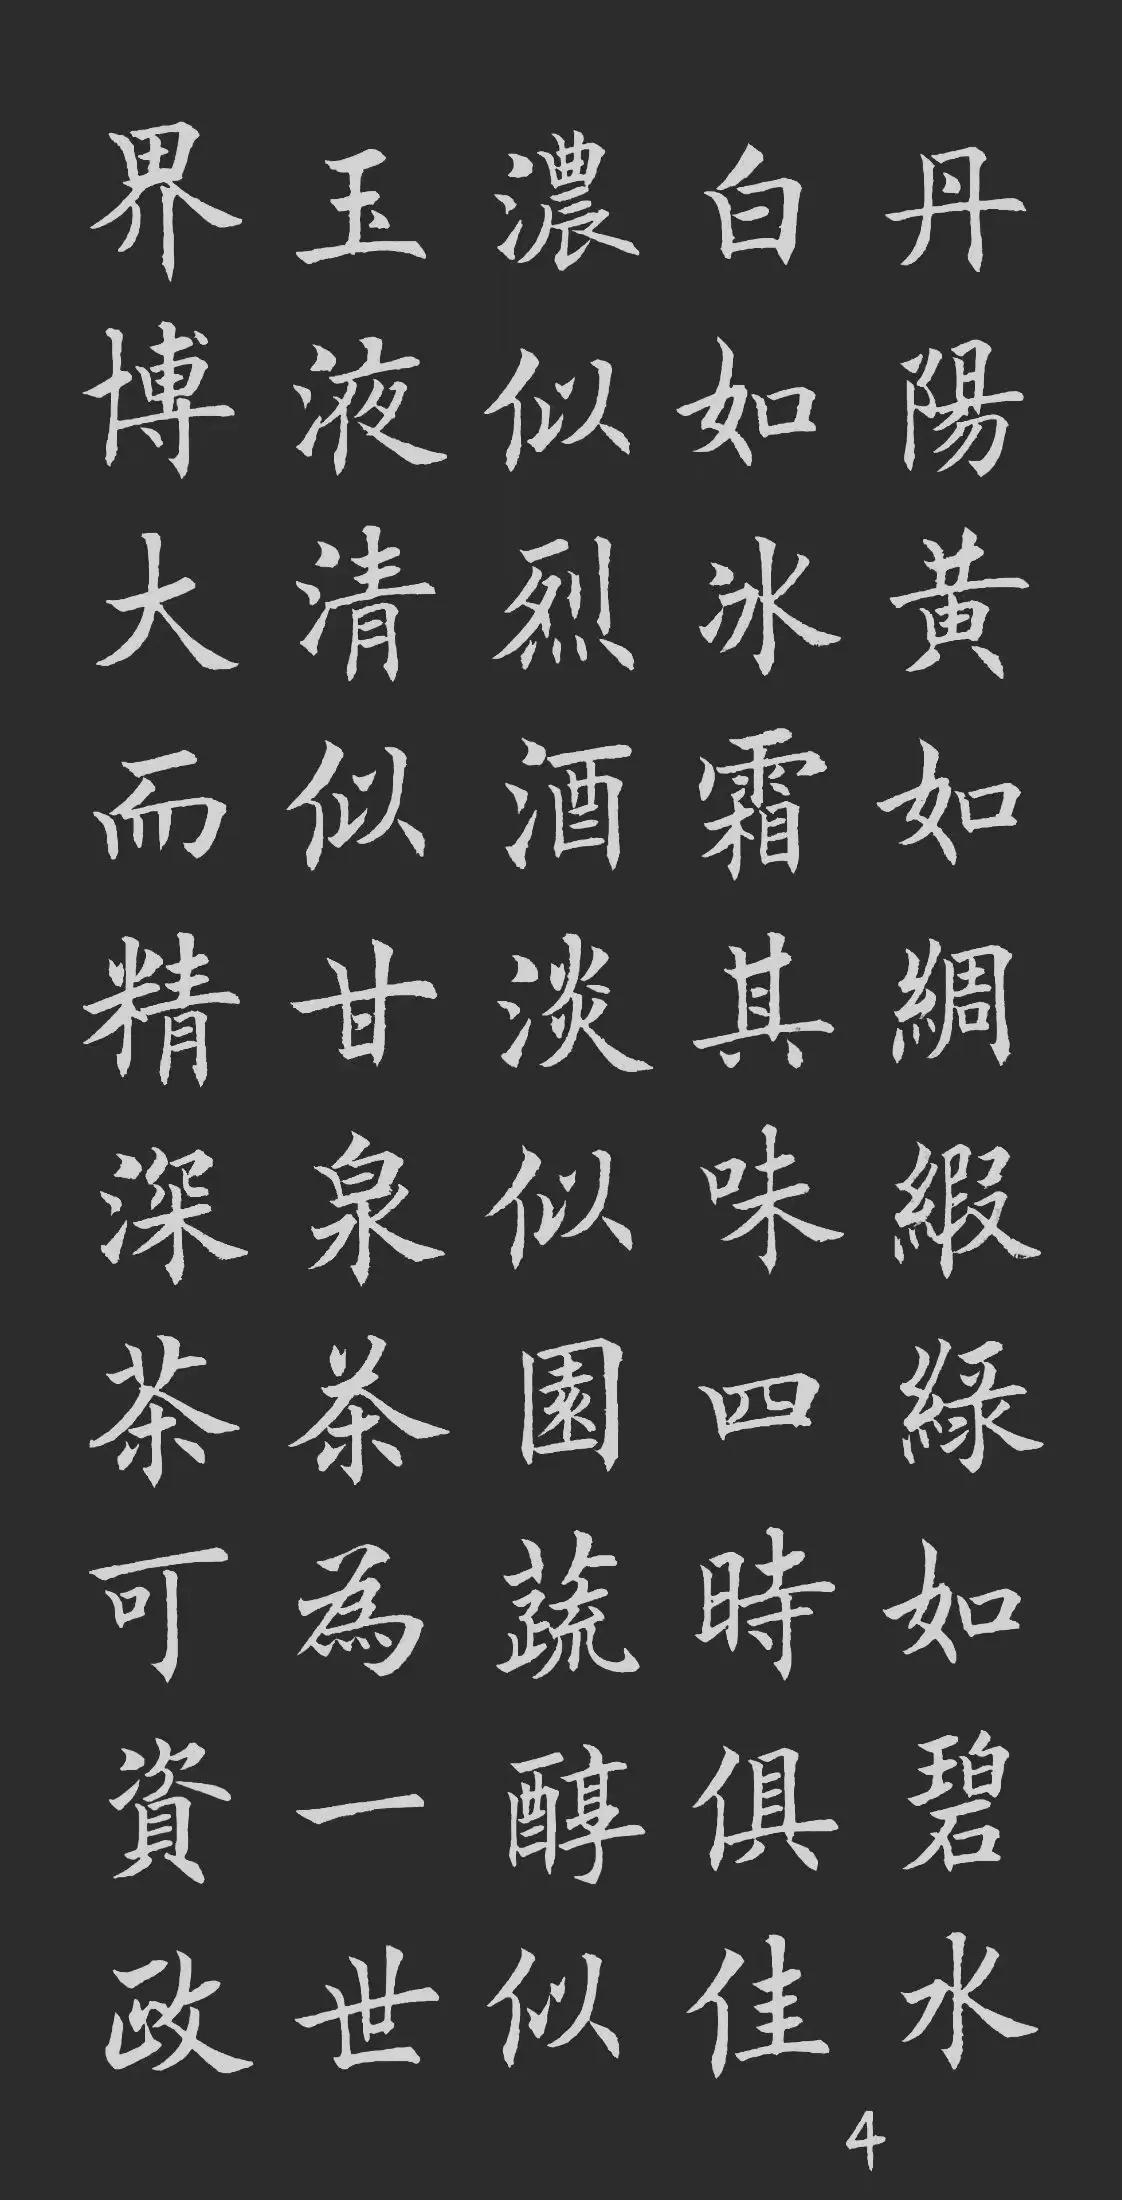 丹陽黃如綢緞綠如碧水
白如冰霜其味四時俱佳
濃似烈酒淡似園蔬醇似
玉液清似甘泉茶為一世
界博大而精深茶可資政
4